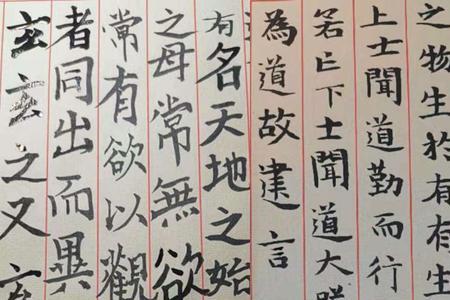 之物生於有有生
上士聞道勤而行
若亡下士聞道大
為道故建言
有名天地之始
之母常無欲
常有欲以觀
者同出而異
玄玄之又玄